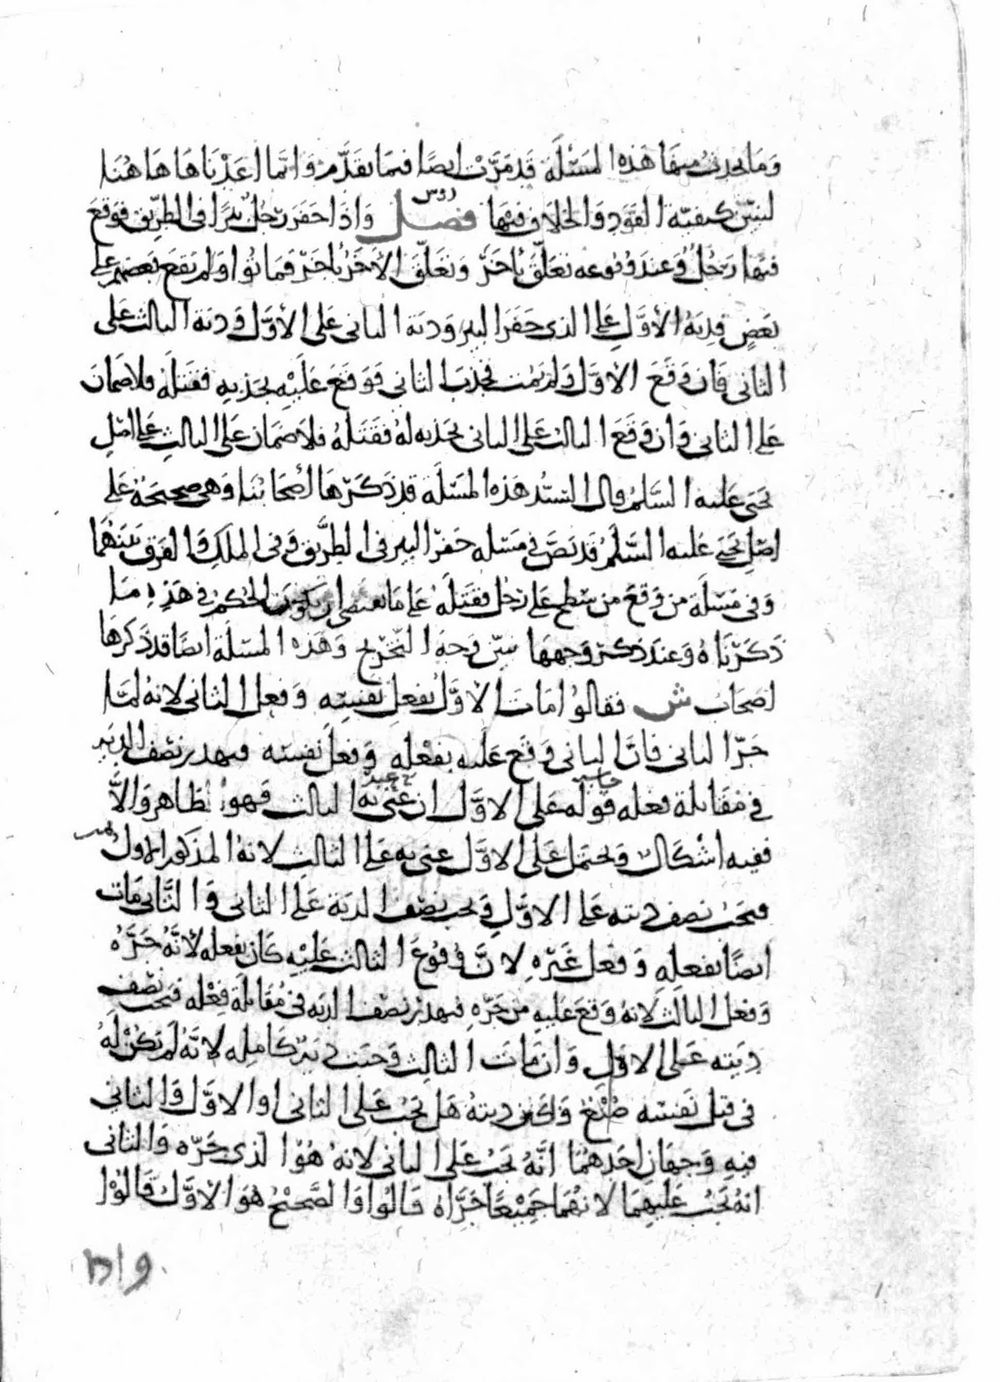 وما يحدث فيها هذه المسئلة قد مرّت ايضًا فيما تقدّم وانما اعدناها هاهنا
لنبيّن كيفيّة القود والخلاف فيها فصل واذا حفر رجل بئرًا في الطريق فوقع
فيها رجل وعند وقوعه تعلّق بآخر وتعلّق الآخر بآخر فماتوا ولم يقع بعضهم على
بعض فدية الأوّل على الذي حفر البير ودية الثاني على الأوّل ودية الثالث على
الثاني فان وقع الاوّل ولم يمت فجذب الثاني فوقع عليه بجذبه فقتله فلا ضمان
على الثاني وان وقع الثالث على الثاني بجذبه له فقتله فلا ضمان على الثالث على اصل
يحيى عليه السلم قال السيّد هذه المسئلة قد ذكرها اصحابنا وهي صحيحة على
اصل يحيى عليه السّلم قد نصّ في مسئلة حفر البير في الطريق وفي الملك والفرق بينهما
وفي مسئلة من وقع من سطح على رجل فقتله على ما يقتضي ان يكون الحكم في هذه ما
ذكرناه وعند ذكر وجهها نبيّن وجه التخريج وهذه المسئلة ايضًا قد ذكرها
اصحاب ش فقالوا مات الاوّل بفعل نفسه وفعل الثاني لانه لمّا
جرّ الثاني فان الثاني وقع عليه بفعله وفعل نفسه فيهدر نصف الدية
في مقابلة فعله قوله على الاوّل ان عنى به الثالث فهو ظاهر والا
ففيه اشكال ويحتمل على الاوّل عنى به على الثالث لانه المذكور الاول
فيجب نصف ديته على الاوّل ويجب نصف الدية على الثاني والثاني مات
ايضًا بفعله وفعل غيره لانّ وقوع الثالث عليه كان بفعله لانّه جرّه
وفعل الثالث لانه وقع عليه من جرّه فيهدر نصف الدية في مقابلة فعله فيجب نصف
ديته على الاوّل وان مات الثالث وجبت دية كاملة لانّه لم يكن له
في قتل نفسه صنع وديته هل تجب على الثاني او الاوّل والثاني
فيه وجهان احدهما انّه تجب على الثاني لانه هو الذي جرّه والثاني
انه تجب عليهما لانهما جميعًا جرّاه قالوا والصّحيح هو الاوّل قالوا